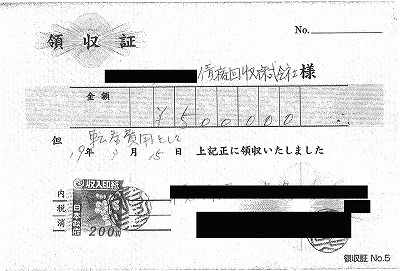 領収証
No.
債権回収株式会社様
金額 ¥500000
但 転居費用として
19年 3月 15日 上記正に領収いたしました
内
税
消
収入印紙
日本政府
200円
領収証 No.5